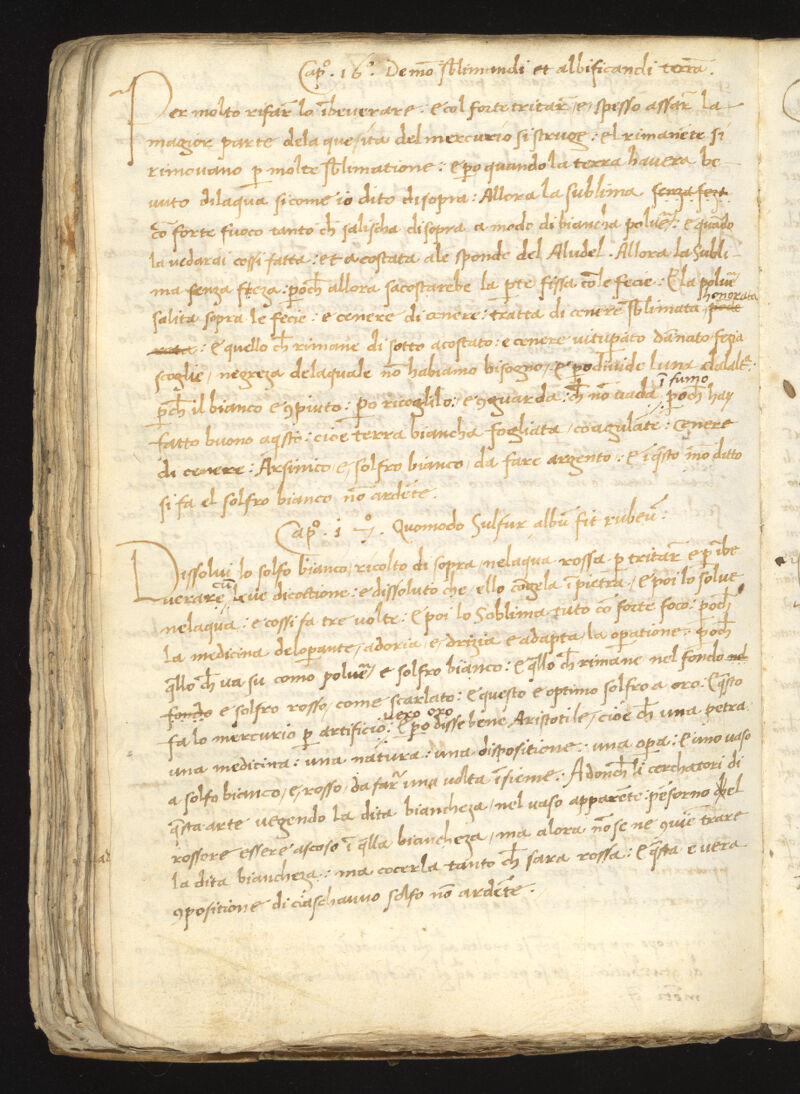 Capo. 16o. De mo sblimandi et albificandi terra.
Per molto rifar lo ibeverare : e col forte tritar / e / spesso assar la
magior parte dela que / ita del mercurio si struge : el rimanete si
rimovano p molte sblimatione : e po quando la terra havera be
vuto dilaqua sicome io dito disopra : Allora la sublima senza feza
co forte fuoco tanto ch salischa disopra a modo di biancha polve : e quado
la vedarai cossi fatta : et acostata ale sponde del Aludel . Allora la Subli
ma senza feza : poch allora sacostarebe la pte fissa co le fecie : E la polve
salita sopra le fecie : e cenere di cenere : tratta di cenere sblimata honorata
: e quello ch rimane di sotto acostato : e cenere vitupato danato fezia
scoglie / negreza delaquale no habiamo bisogno / e po divide luna dalalt :
pch il bianco e 9piuto : po ricoglilo : e 9guarda : ch no vada i fumo poch hay
fatto buono aqsto : cioe terra biancha fogliata / coagulate : cenere
di cenere : Arsinico / e / solfro bianco / da fare argento : E i qsto mo ditto
si fa el solfro bianco no ardete .
Capo . 17o . Quomodo Sulfur albu fit rubeu :
Dissolvi lo solfo bianco / ricolto di sopra / nelaqua rossa p tritar e p ibe
verare cu leve dicoctione : e dissoluto che / ello cogela i pietra / e poi lo solut
nelaqua : e cossi fa tre volte : E poi lo Soblima tuto co forte foco : poch
la medicina deloperante / adoria / e drizia e adapta la opatione : poch
qllo ch va su como polve / e solfro bianco : E qllo ch rimane nel fondo nel
fondo e solfro rosso / come scarlato : e questo e optimo solfro a oro : E qsto
fa lo mercurio p artificio : vero oro E po disse bene Aristotile / cioe ch una petra
una medicina : una natura : una dispositione : una opa : E uno vaso
a solfo bianco / e / rosso / da far una volta isieme : Adonch li cerchatori di
qsta arte vegendo la dita biancheza / nel vaso apparete : pesorno del
rossore essere ascoso i qlla biancheza / ma alora no se ne 9vie trare
la dita biancheza : ma cocerla tanto ch sara rossa : E qsta e vera
9positione di ciaschauno solfo no ardete .